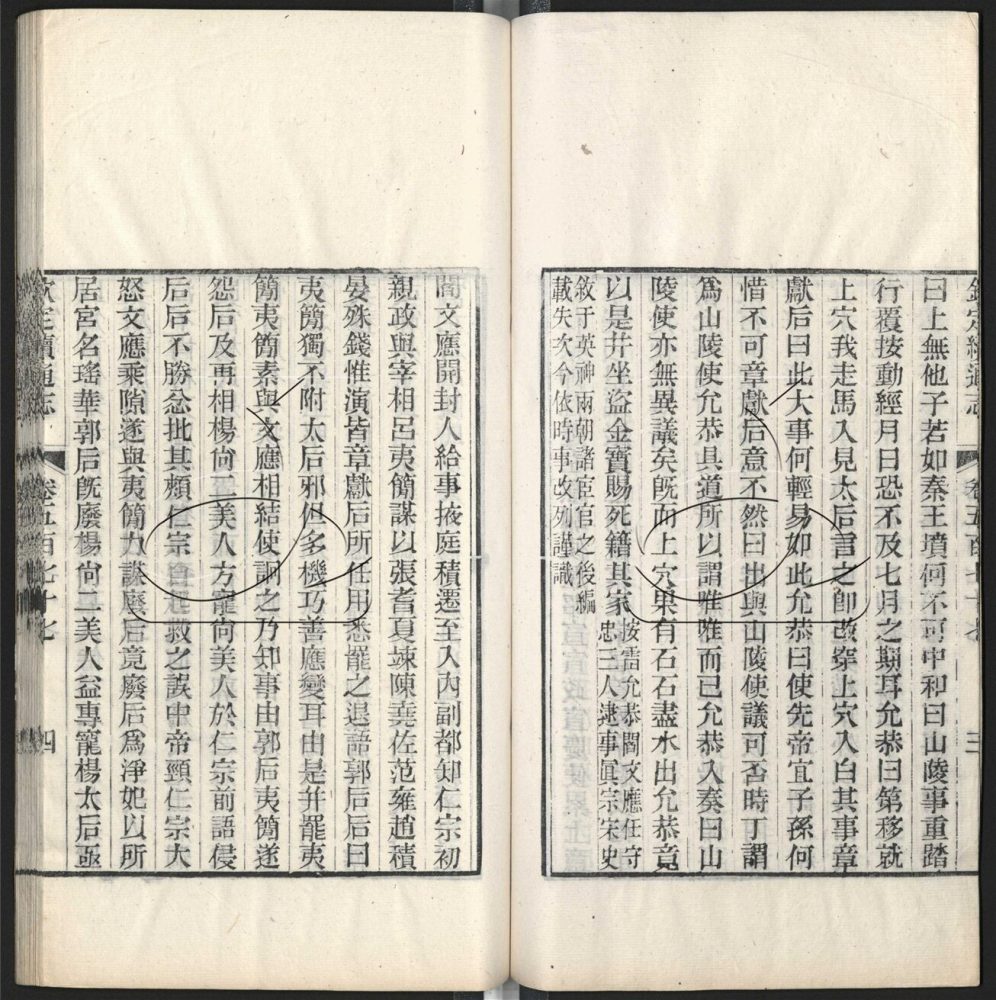 欽定續通志
卷五百七十七
三
曰上無他子若如秦王墳何不可中和曰山陵事重踏
行覆按動經月日恐不及七月之期耳允恭曰第移就
上穴我走馬入見太后言之卽改穿上穴入白其事章
獻后曰此大事何輕易如此允恭曰使先帝宜子孫何
惜不可章獻后意不然曰出與山陵使議可否時丁謂
爲山陵使允恭具道所以謂唯唯而已允恭入奏曰山
陵使亦無異議矣旣而上穴果有石石盡水出允恭竟
以是幷坐盜金寶賜死籍其家按雷允恭閻文應任守
忠三人逮事眞宗宋史
敘于英神兩朝諸宦官之後編
載失次今依時事改列謹識
閻文應開封人給事掖庭積遷至入內副都知仁宗初
親政與宰相呂夷簡謀以張耆夏竦陳堯佐范雍趙積
晏殊錢惟演皆章獻后所任用悉罷之退語郭后后曰
夷簡獨不附太后邪但多機巧善應變耳由是幷罷夷
簡夷簡素與文應相結使詗之乃知事由郭后夷簡遂
怨后及再相楊尙二美人方寵尙美人於仁宗前語侵
后后不勝忿批其頰仁宗自起救之誤中帝頸仁宗大
怒文應乘隙遂與夷簡力謀廢后竟廢后爲淨妃以所
居宮名瑤華郭后旣廢楊尙二美人益專寵楊太后亟
欽定續通志
卷五百七十七
四